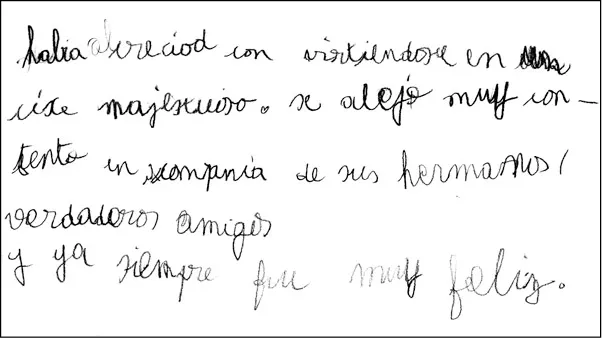 había abreciod con virtiendose en un
cise majestuoso. se alejó muy con-
tento en compania de sus hermanos/
verdaderos amigos
y ya siempre fue muy feliz.